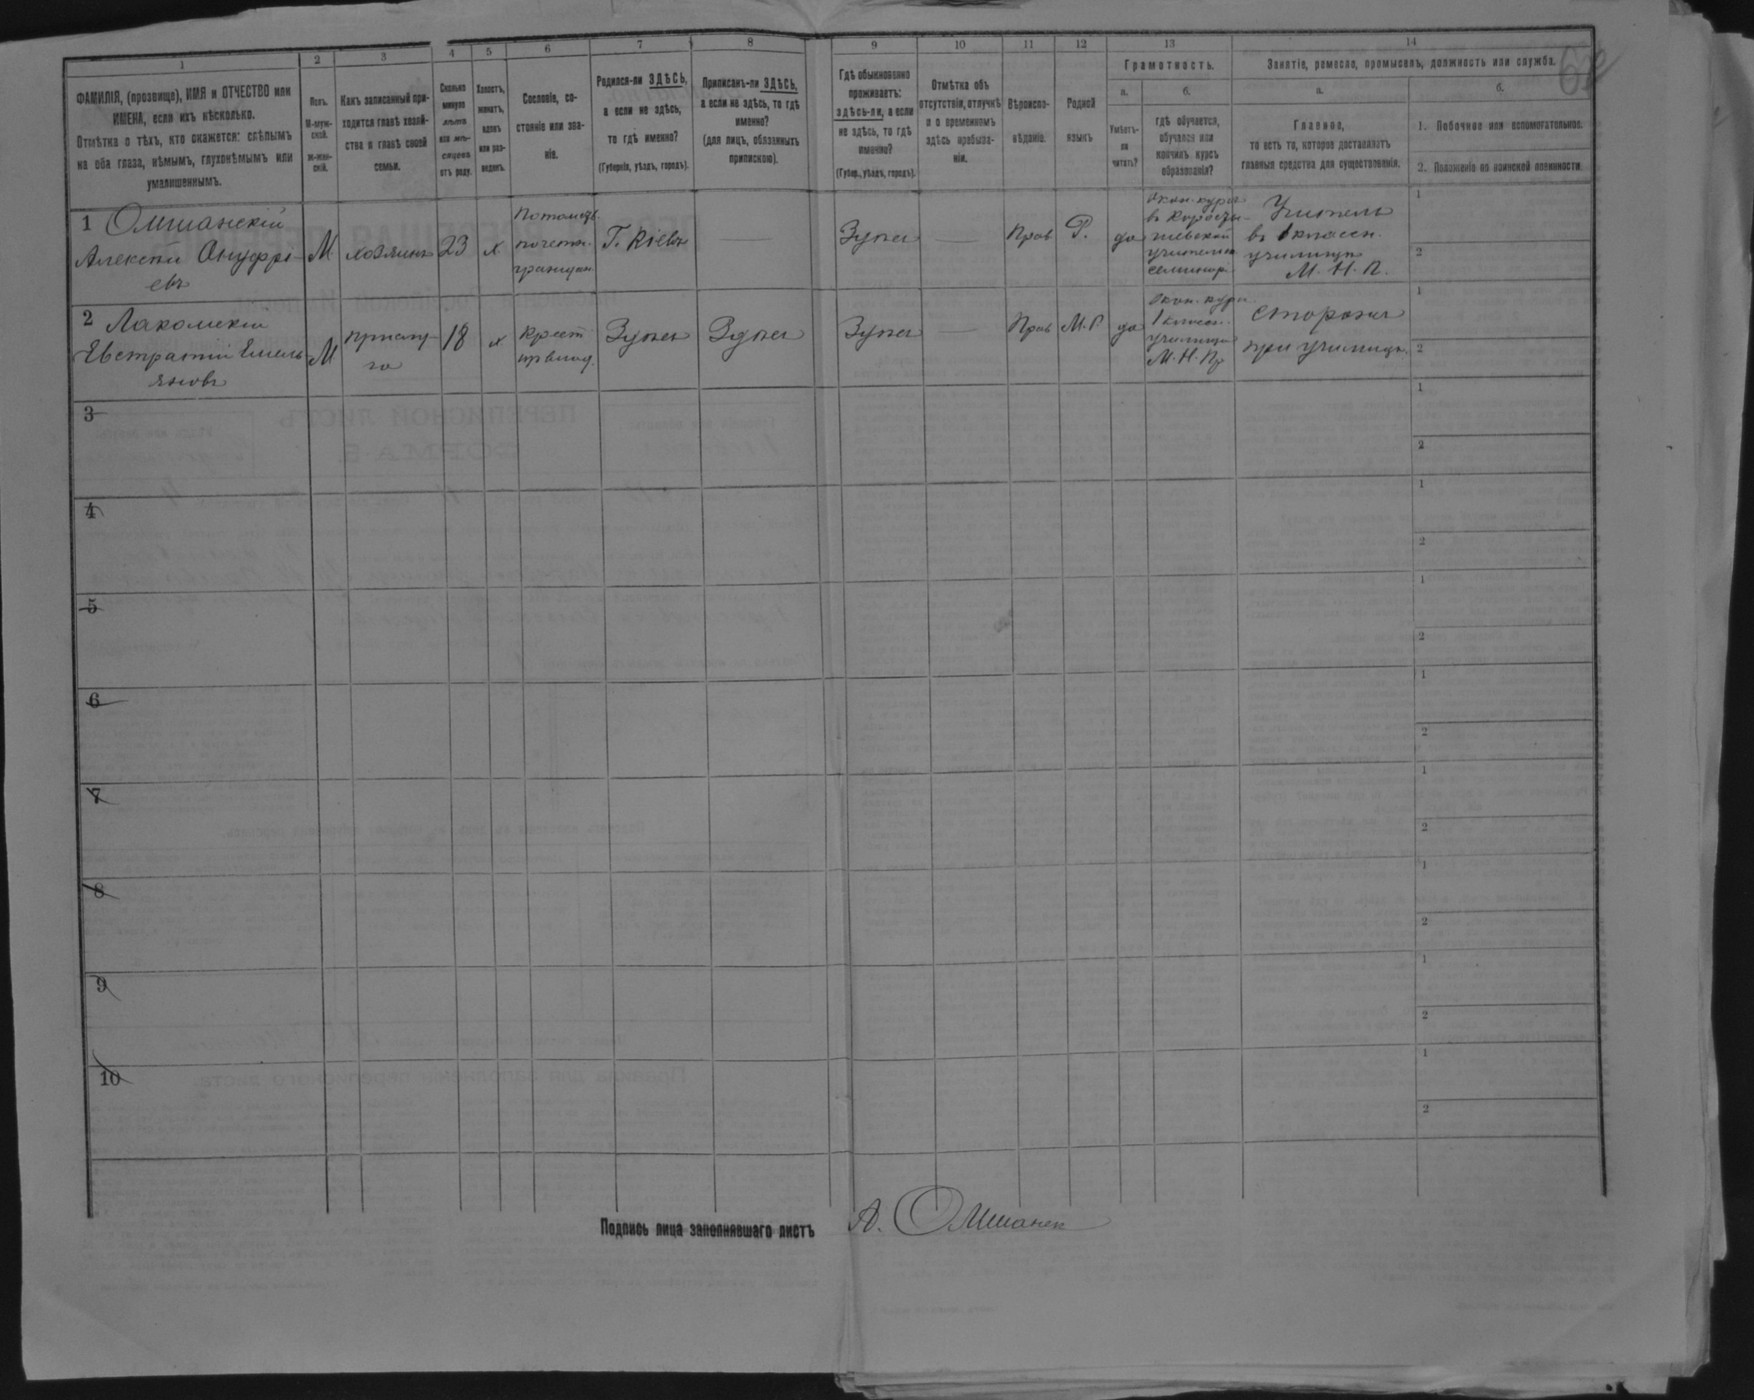 1
2
3
4
5
6
7
8
9
10
11
12
13
14
ФАМИЛІЯ, (прозвища), ИМЯ и ОТЧЕСТВО или
ИМЕНА, если ихъ нѣсколько.
Отмѣтка о тѣхъ, кто окажется: слѣпымъ
на оба глаза, нѣмымъ, глухонѣмымъ или
умалишеннымъ.
Полъ.
М-муж-
ской.
Ж-жен-
скій.
Какъ записанный при-
ходится главѣ хозяй-
ства и главѣ своей
семьи.
Сколько
минуло
лѣтъ
или мѣ-
сяцевъ
отъ роду.
Холостъ,
женатъ,
вдовъ
или раз-
веденъ.
Сословіе, со-
стояніе или зва-
ніе.
Родился-ли ЗДѢСЬ,
а если не здѣсь,
то гдѣ именно?
(Губернія, уѣздъ, городъ).
Приписанъ-ли ЗДѢСЬ,
а если не здѣсь, то гдѣ
именно?
(для лицъ, обязанныхъ
припискою).
Гдѣ обыкновенно
проживаетъ:
здѣсь-ли, а если
не здѣсь, то гдѣ
именно?
(Губер., уѣздъ, городъ).
Отмѣтка объ
отсутствіи, отлучкѣ
и о временномъ
здѣсь пребыва-
ніи.
Вѣроиспо-
вѣданіе.
Родной
языкъ
Грамотность.
а.
Умѣетъ-
ли
читать?
б.
гдѣ обучается,
обучался или
кончилъ курсъ
образованія?
Занятіе, ремесло, промыселъ, должность или служба.
а.
Главное,
то есть то, которое доставляетъ
главныя средства для существованія.
б.
1. Побочное или вспомогательное.
2. Положеніе по воинской повинности.
1 Омшанскій
Алексѣй Онуфрі-
евъ
М.
хозяинъ
23
х
Потомств.
почетн.
граждан.
Г. Кіевъ
—
—
Прав
Р.
да
Окон. курсъ
въ Коросты-
шевской
учительск
семинар.
Учитель
въ 1 классн.
училищѣ
М. Н. П.
1
2
2 Лакомскій
Евстратій Емель-
яновъ
М
прислу-
га
18
х
Крест.
—
Прав
М. Р.
да
Окон. курс.
1 классн.
училища
М. Н. Пр
сторожъ
при училищѣ
1
2
3
1
2
4
1
2
5
1
2
6
1
2
7
1
2
8
1
2
9
1
2
10
1
2
Подпись лица заполнявшаго листъ А. Омшанск